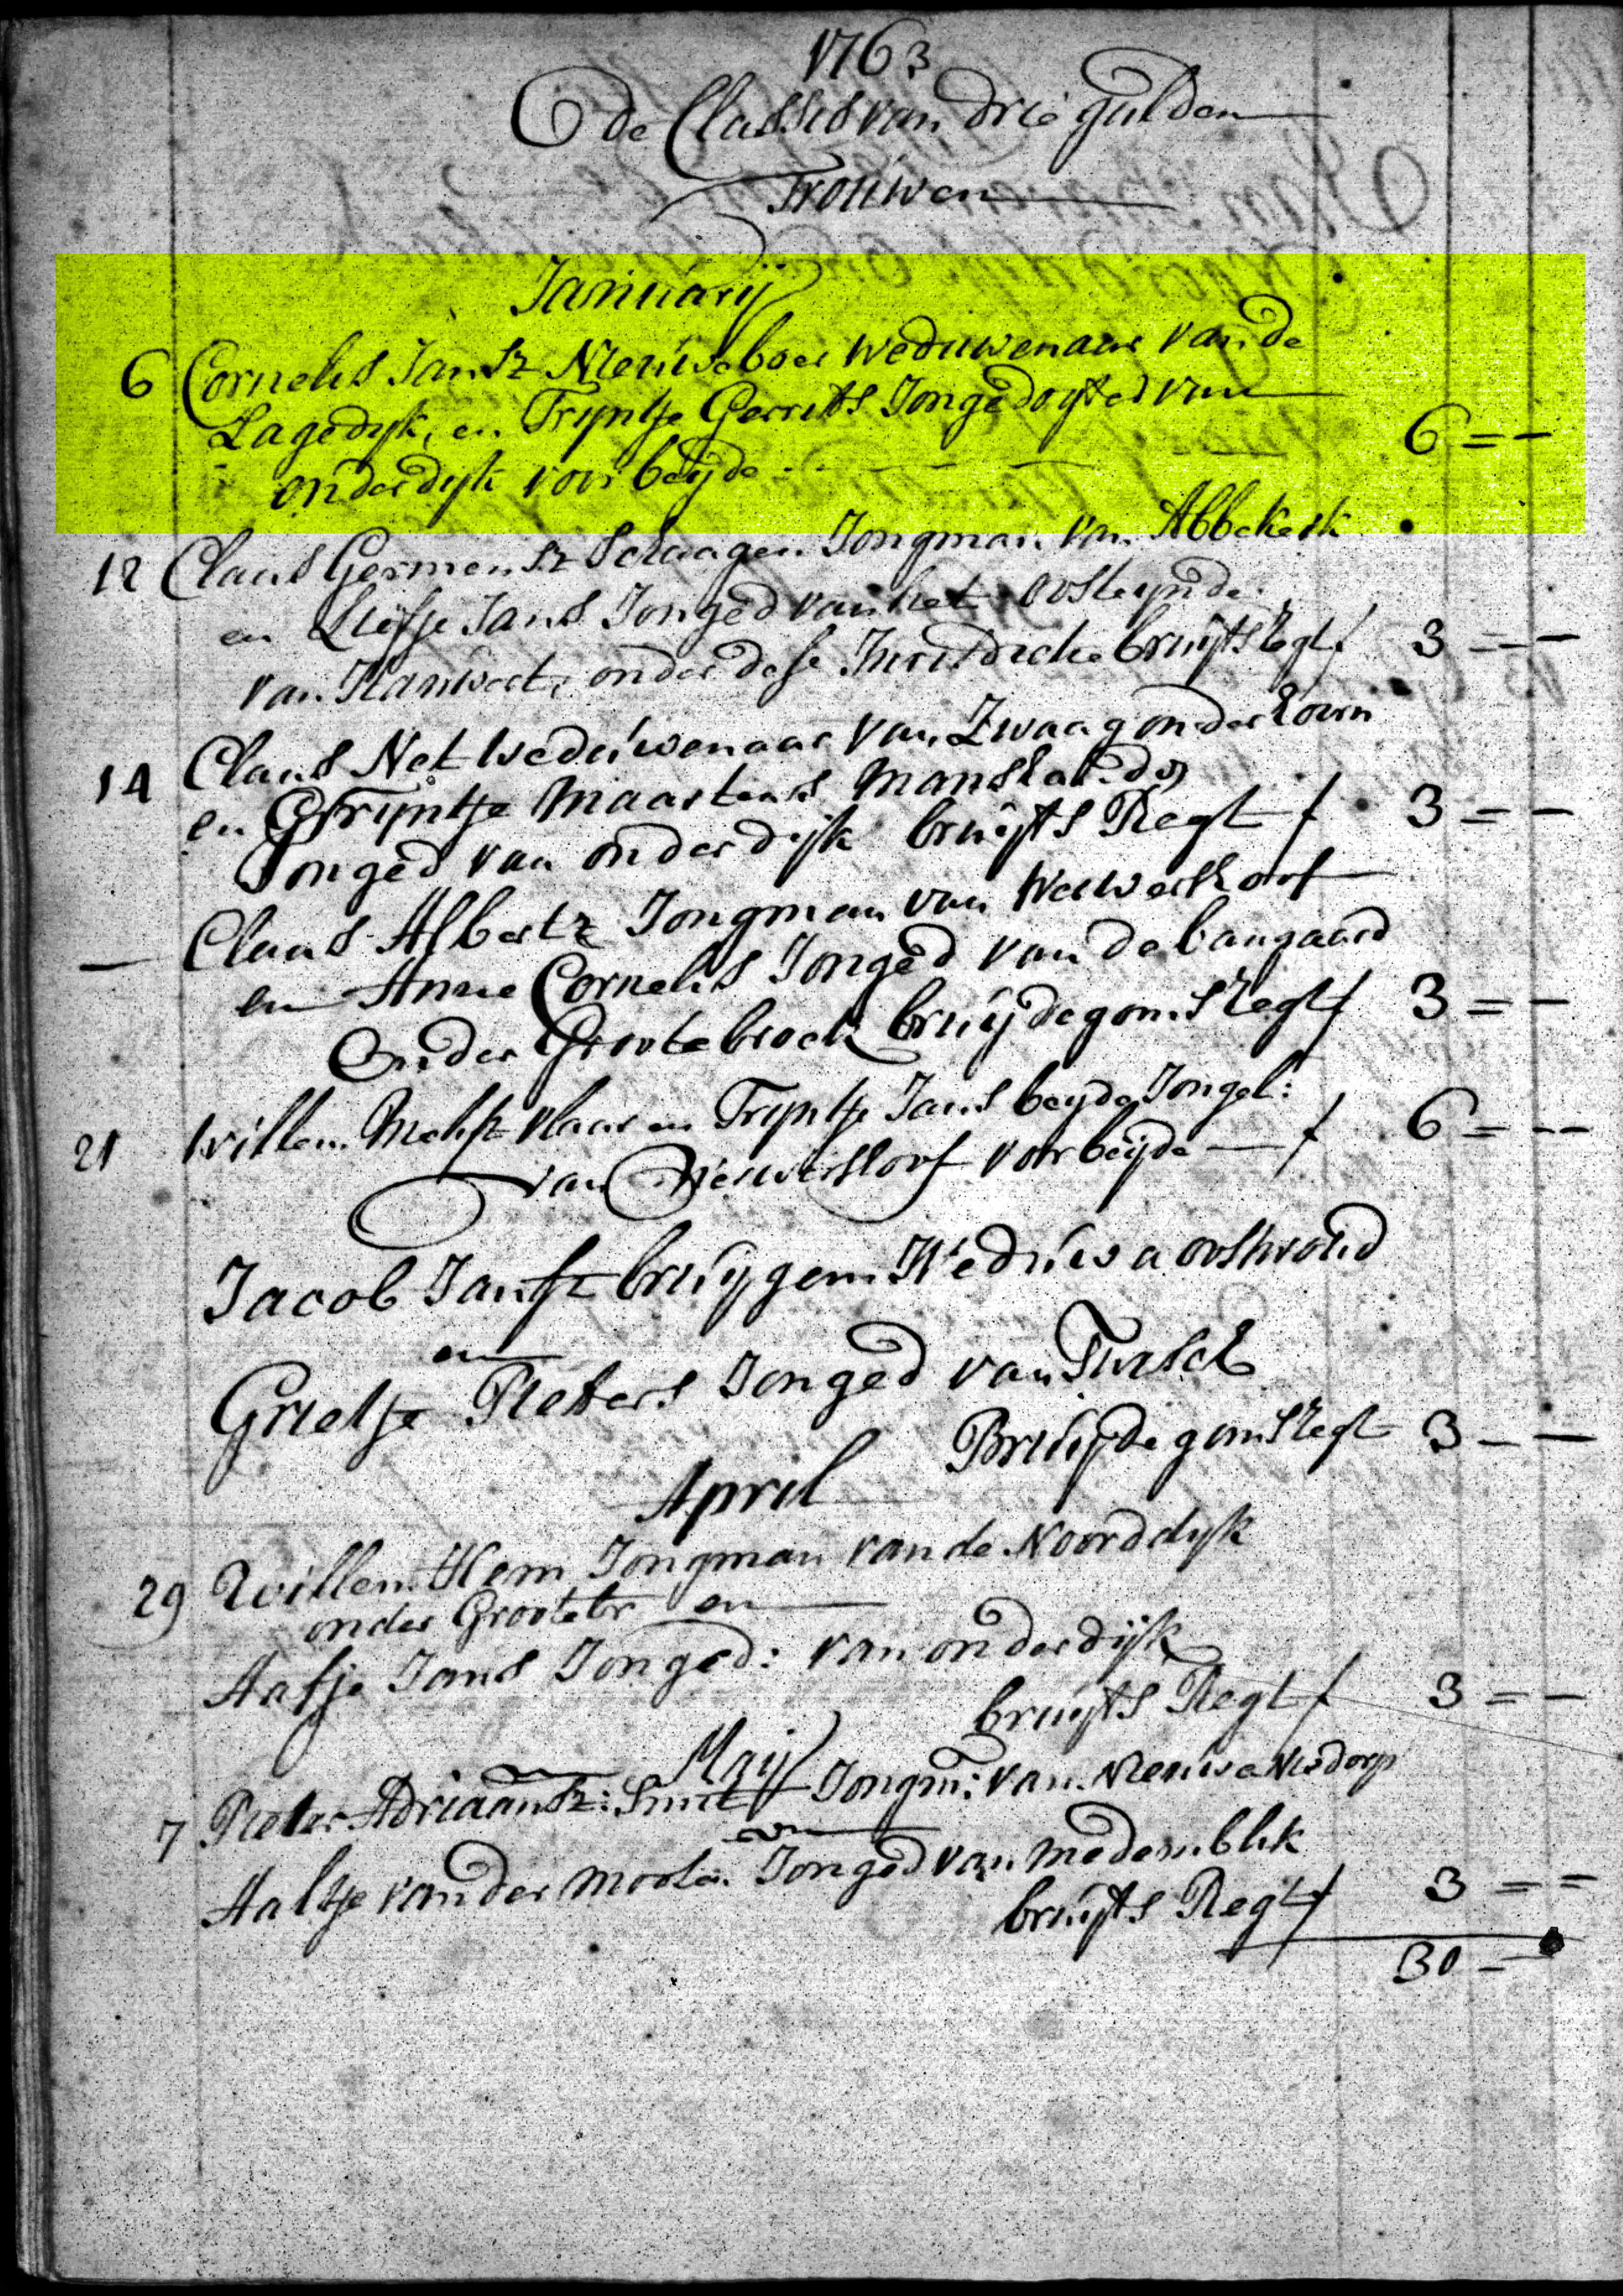 1763
de Classis van drie gulden
Trouwen
Januarij
6 Cornelis Jansz Nieuweboer weduwenaar van de
Lagedijk, en Trijntje Gerrits Jongedogter van
onderdijk voor beijde 6 = -
12 Claas Germensz Schaagen Jongman van Abbekerk
en Liefje Jans Jonged van het oosteijnde
van Hauwert, onder dese Jurisdictie bruijts Regt f 3 = -
14 Claas Net weduwenaar van Zwaag onder hoorn
en Trijntje Maartens
Jonged van onderdijk bruijts Regt f 3 = -
— Claas Albertz Jongman van Werwershoof
en Anne Cornelis Jonged van de bangaard
onder Grootebroek bruijdegoms Regt f 3 = -
21 Willem vlaar en Trijntje Jans beijde Jongel:
van Werwershoof voor beijde — f 6 = -
Jacob Jansz bruijgom Weduw a oostwoud
en
Grietje Pieters Jonged van Twisch
Bruijdegoms Regt 3 - -
April
29 Willem Hem Jongman van de Noorddijk
onder Grootebr en
Aafje Jans Jonged: van onderdijk
bruijts Regt f 3 = -
Maij
7 Pieter Adriaansz: Smit Jongm: van Nieuwe Nidorp
en
Aaltje van der Moolen Jonged van Medemblik
bruijts Regt f 3 = =
30 - -